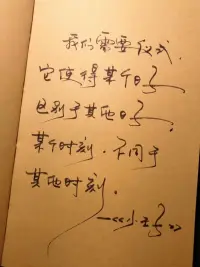 我们需要仪式.
它使得某个日子
区别于其他日子.
某个时刻.不同于
其他时刻.
—《小王子》